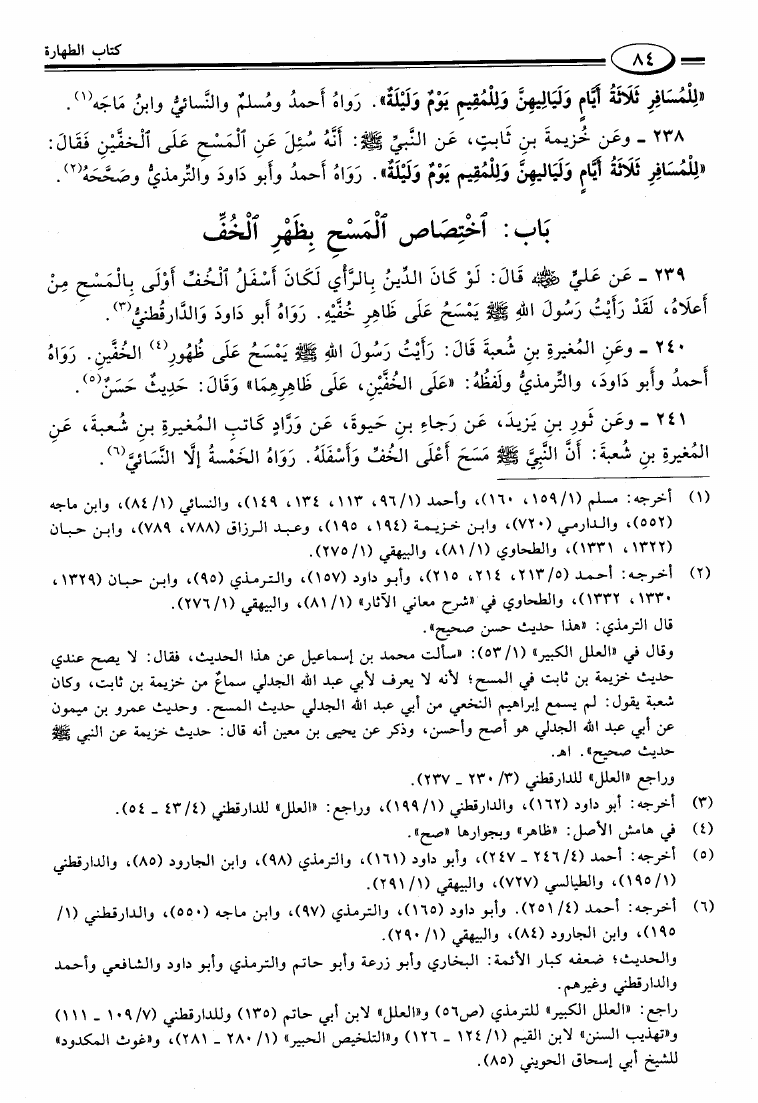 ٨٤
كتاب الطهارة
«لِلْمُسَافِرِ ثَلَاثَةُ أَيَّامٍ وَلَيَالِيهِنَّ وَلِلْمُقِيمِ يَوْمٌ وَلَيْلَةٌ». رَوَاهُ أَحمدُ ومُسلمٌ والنَّسائيُّ وابنُ مَاجَه(١).
٢٣٨ ـ وعَن خُزيمةَ بنِ ثَابتٍ، عَن النَّبيِّ ﷺ: أَنَّهُ سُئِلَ عَنِ ٱلْمَسْحِ عَلَى ٱلْخفَّيْنِ فَقَالَ:
«لِلْمُسَافِرِ ثَلَاثَةُ أَيَّامٍ وَلَيَاليهنَّ وَلِلْمُقِيمِ يَوْمٌ وَلَيْلَةٌ». رَوَاهُ أَحمدُ وأَبو دَاودَ والتِّرمذيُّ وصَحَّحَهُ(٢).
بَاب: ٱخْتِصَاصِ ٱلْمَسْحِ بِظَهْرِ ٱلْخُفِّ
٢٣٩ ـ عَن عَليٍّ ﵁ قَالَ: لَوْ كَانَ الدِّينُ بِالرَّأْيِ لَكَانَ أَسْفَلُ ٱلْخُفِّ أَوْلَى بِالْمَسْحِ مِنْ
أَعلَاهُ، لَقَدْ رَأَيْتُ رَسُولَ اللهِ ﷺ يَمْسَحُ عَلَى ظَاهِرِ خُفَّيْهِ. رَوَاهُ أَبو دَاودَ وَالدَّارقُطنيُّ(٣).
٢٤٠ ـ وعَنِ المُغيرةِ بنِ شُعبةَ قَالَ: رَأَيْتُ رَسُولَ اللهِ ﷺ يَمْسَحُ عَلَى ظُهُورِ(٤) الخُفَّينِ. رَوَاهُ
أَحمدُ وأَبو دَاودَ، والتِّرمذيُّ ولَفظُهُ: «عَلَى الخُفَّيْنِ، عَلَى ظَاهِرِهِمَا» وَقَالَ: حَدِيثٌ حَسَنٌ(٥).
٢٤١ ـ وعَن ثَورِ بنِ يَزيدَ، عَن رَجاءِ بنِ حَيوةَ، عَن وَرَّادٍ كاتبِ المُغيرةِ بنِ شُعبةَ، عَنِ
المُغيرةِ بنِ شُعبةَ: أَنَّ النَّبيَّ ﷺ مَسَحَ أَعْلَى الخُفِّ وَأَسْفَلَهُ. رَوَاهُ الخَمْسةُ إِلَّا النَّسَائيَّ(٦).
(١) أخرجه: مسلم (١/ ١٥٩، ١٦٠)، وأحمد (١/ ٩٦، ١١٣، ١٣٤، ١٤٩)، والنسائي (١/ ٨٤)، وابن ماجه
(٥٥٢)، والدارمي (٧٢٠)، وابن خزيمة (١٩٤، ١٩٥)، وعبد الرزاق (٧٨٨، ٧٨٩)، وابن حبان
(١٣٢٢، ١٣٣١)، والطحاوي (١/ ٨١)، والبيهقي (١/ ٢٧٥).
(٢) أخرجه: أحمد (٥/ ٢١٣، ٢١٤، ٢١٥)، وأبو داود (١٥٧)، والترمذي (٩٥)، وابن حبان (١٣٢٩،
١٣٣٠، ١٣٣٢)، والطحاوي في «شرح معاني الآثار» (١/ ٨١)، والبيهقي (١/ ٢٧٦).
قال الترمذي: «هذا حديث حسن صحيح».
وقال في «العلل الكبير» (١/ ٥٣): «سألت محمد بن إسماعيل عن هذا الحديث، فقال: لا يصح عندي
حديث خزيمة بن ثابت في المسح؛ لأنه لا يعرف لأبي عبد الله الجدلي سماعٌ من خزيمة بن ثابت، وكان
شعبة يقول: لم يسمع إبراهيم النخعي من أبي عبد الله الجدلي حديث المسح. وحديث عمرو بن ميمون
عن أبي عبد الله الجدلي هو أصح وأحسن، وذكر عن يحيى بن معين أنه قال: حديث خزيمة عن النبي ﷺ
حديث صحيح». اهـ.
وراجع «العلل» للدارقطني (٣/ ٢٣٠ ـ ٢٣٧).
(٣) أخرجه: أبو داود (١٦٢)، والدارقطني (١/ ١٩٩)، وراجع: «العلل» للدارقطني (٤/ ٤٣ ـ ٥٤).
(٤) في هامش الأصل: «ظاهر» وبجوارها «صح».
(٥) أخرجه: أحمد (٤/ ٢٤٦ ـ ٢٤٧)، وأبو داود (١٦١)، والترمذي (٩٨)، وابن الجارود (٨٥)، والدارقطني
(١/ ١٩٥)، والطيالسي (٧٢٧)، والبيهقي (١/ ٢٩١).
(٦) أخرجه: أحمد (٤/ ٢٥١). وأبو داود (١٦٥)، والترمذي (٩٧)، وابن ماجه (٥٥٠)، والدارقطني (١/
١٩٥)، وابن الجارود (٨٤)، والبيهقي (١/ ٢٩٠).
والحديث؛ ضعفه كبار الأئمة: البخاري وأبو زرعة وأبو حاتم والترمذي وأبو داود والشافعي وأحمد
والدارقطني وغيرهم.
راجع: «العلل الكبير» للترمذي (ص٥٦) و«العلل» لابن أبي حاتم (١٣٥) وللدارقطني (٧/ ١٠٩ ـ ١١١)
و«تهذيب السنن» لابن القيم (١/ ١٢٤ ـ ١٢٦) و«التلخيص الحبير» (١/ ٢٨٠ ـ ٢٨١)، و«غوث المكدود»
للشيخ أبي إسحاق الحويني (٨٥).